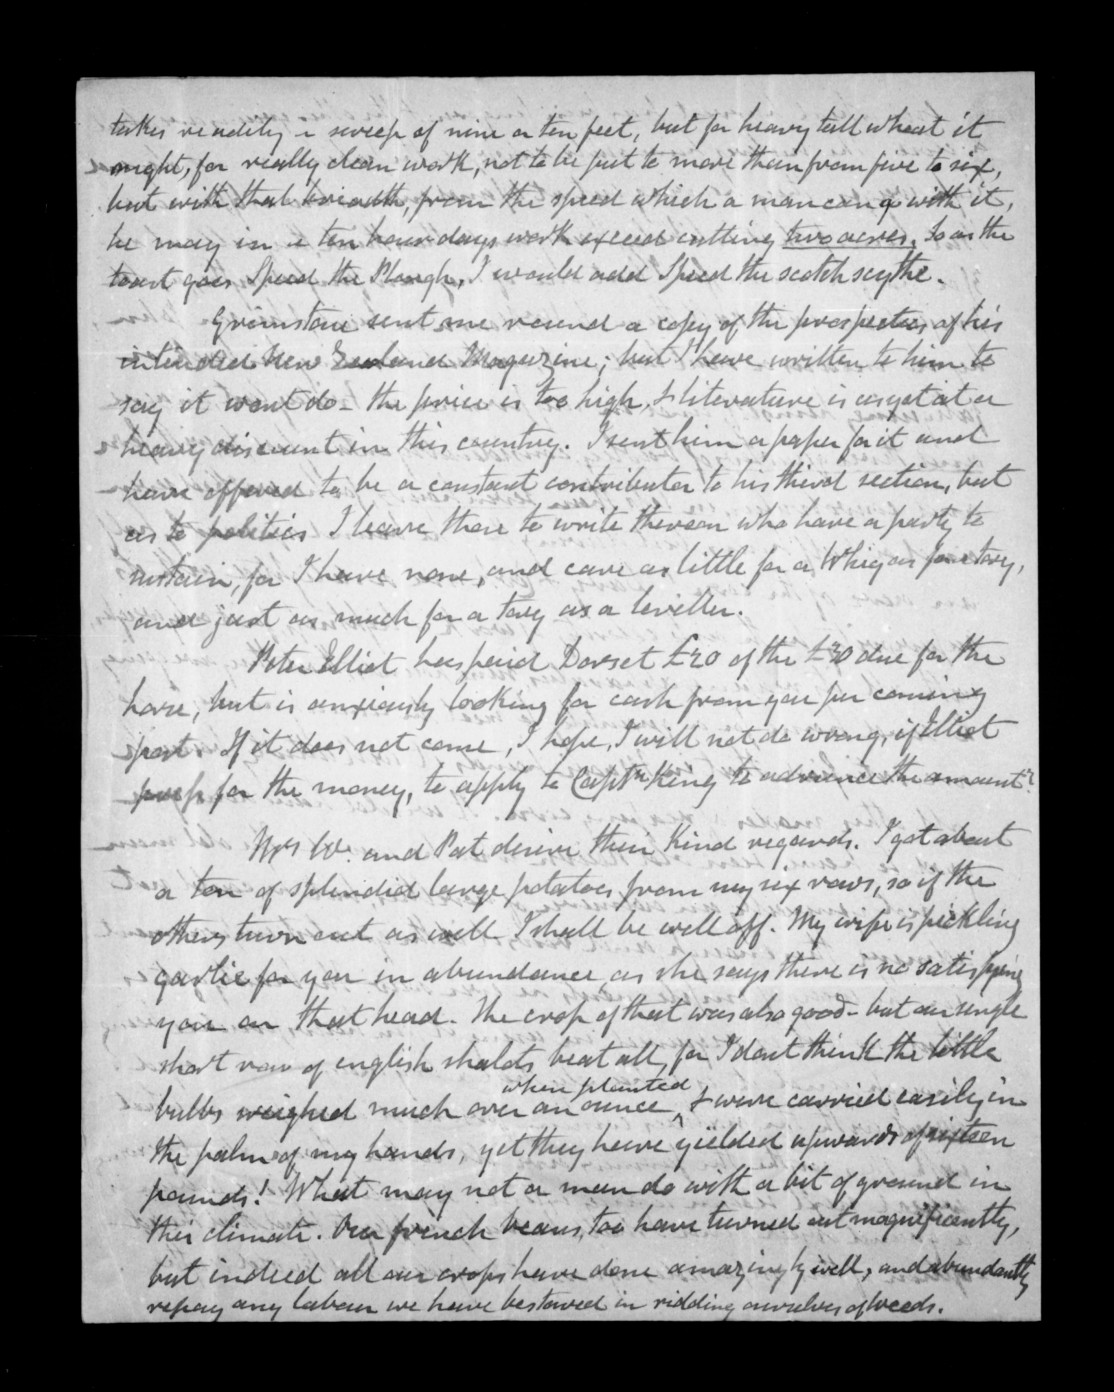 takes readily a sweep of nine or ten feet, but for heavy tall wheat it
ought, for really clean work, not to be put to more than from five to six,
but with that breadth, from the speed which a man can go with it,
he may in a ten hour days work exceed cutting two acres. So as the
toast goes Speed the Plough, I would add Speed the scotch scythe.
Grimstone sent me round a copy of the prospectus of his
intended New Zealand Magazine; but I have written to him to
say it wont do - the price is too high, & literature is as yet at a
heavy discount in this country. I sent him a paper for it and
have offered to be a constant contributor to his third section, but
as to politics I leave those to write thereon who have a party to
sustain, for I have none, and care as little for a Whig as for a tory,
and just as much for a tory as a leveller.
Peter Elliot has paid Dorset £20 of the £30 due for the
horse, but is anxiously looking for cash from you per coming
post. If it does not come, I hope, I will not do wrong, if Elliot
for the money, to apply to Captn King to advance the amount?
Mrs W. and Pat desire their kind regards. I got about
a ton of splendid large potatoes from my six rows, so if the
others turn out as well I shall be well off. My wife is pickling
garlic for you in abundance, as she says there is no satisfying
you on that head. The crop of that was also good - but our single
short row of english shalots beat all, for I dont think the little
bulbs weighed much over an ounce when planted, & were carried easily in
the palm of my hands, yet they have yielded upwards of sixteen
pounds! What may not a man do with a bit of ground in
this climate. Our french beans too have turned out magnificently,
but indeed all our crops have done amazingly well, and abundantly
repay any labour we have bestowed in ridding ourselves of weeds.